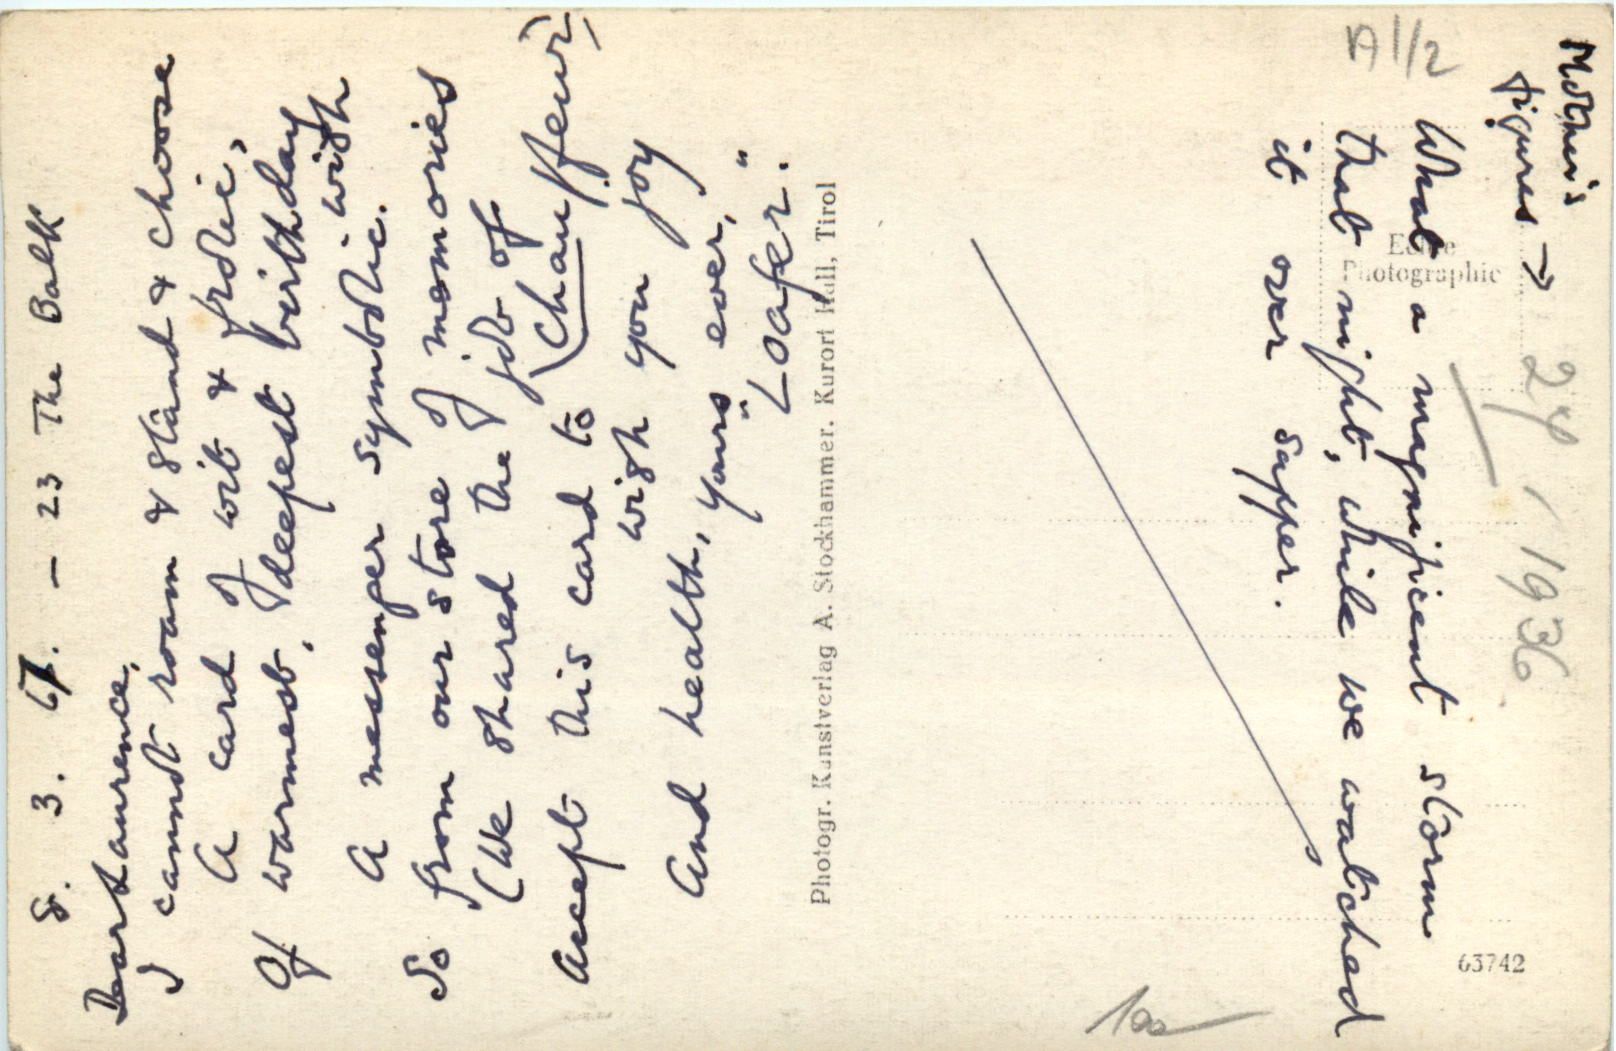 8. 3. 67. – 23 The Balk
Dear Laurence,
I cannot roam & stand & choose
A card of wit & frolic,
Of warmest, deepest birthday wish
A messenger symbolic.
So from our store of memories
(We shared the job of
(Chauffeur))
Accept this card to
wish you joy
And health, yours ever,
"Loafer".
Photogr. Kunstverlag A. Stockhammer. Kurort Hall, Tirol
figures →
A 1/2
What a magnificent storm
that night, while we watched
it over supper.
Echte
Photographie
1936
63742
100